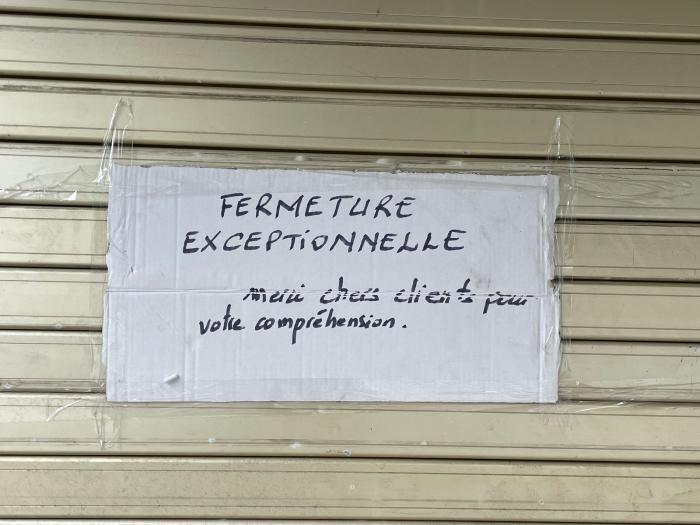 FERMETURE
EXCEPTIONNELLE
merci chers clients pour
votre compréhension.